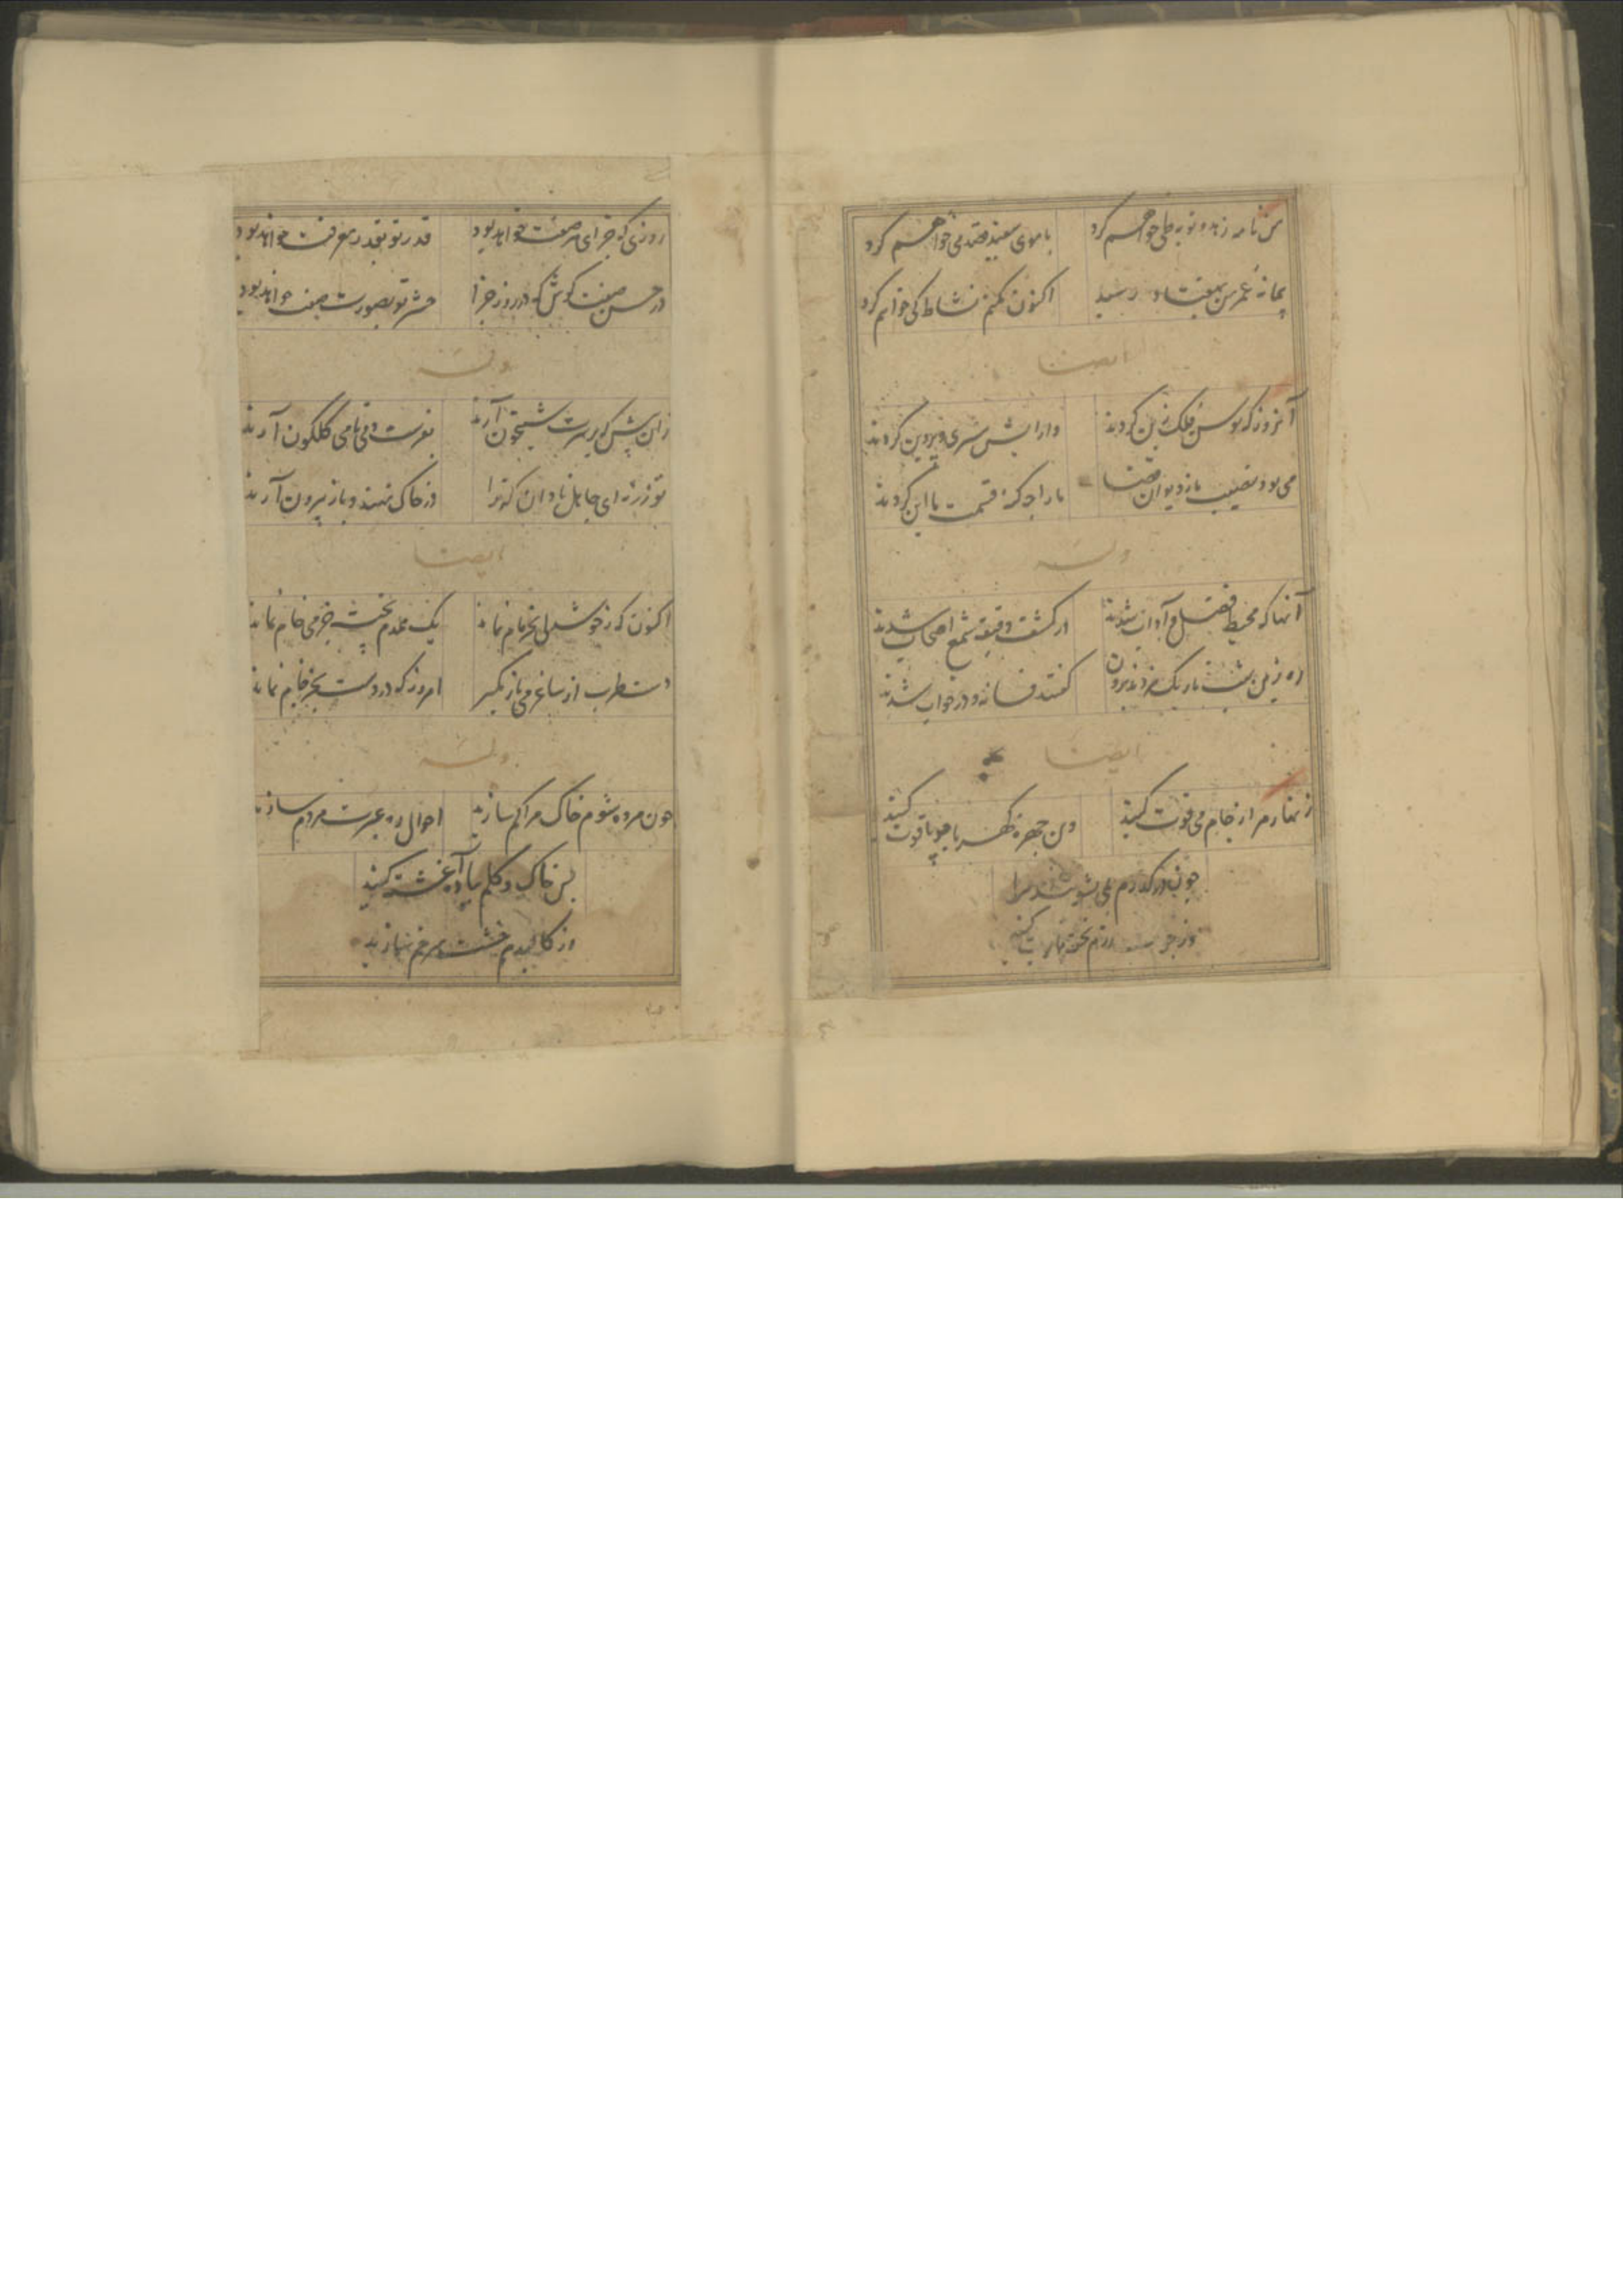 من نامه زهد و توبه طی خواهم کرد
با موی سفید قصد می خواهم کرد
پیمانه عمر من بهفتاد رسید
اکنون نکنم نشاط کی خواهم کرد
ایضا
آنروز که توسن فلک زین کردند
وارایش مشتری و پروین کردند
می بود نصیب ما ز دیوان قضا
ما را چه کنه قسمت ما این کردند
وله
آنها که محیط فضل و آداب شدند
در کشف دقیقه شمع اصحاب شدند
ره زین شب تاریک نبردند برون
گفتند فسانه و در خواب شدند
ایضا
زنهار مرا ز جام می قوت کنید
وین چهره کهربا چو یاقوت کنید
چون درگذرم بمی بشوئید مرا
وز چوب رزم تخته تابوت کنید
روزی که جزای هر صفت خواهد بود
قدر تو بقدر معرفت خواهد بود
در حسن صفت کوش که در روز جزا
حشر تو بصورت صفت خواهد بود
وله
زان پیش که بر سرت شبیخون آرند
بفرست دمی تا می گلگون آرند
تو زر نه ای جاهل نادان که ترا
در خاک نهند و باز بیرون آرند
ایضا
اکنون که ز خوشدلی بجز نام نماند
یک همدم پخته جز می خام نماند
دست طرب از ساغر می باز مگیر
امروز که در دست بجز جام نماند
وله
چون مرده شوم خاک مرا گم سازید
احوال ره عبرت مردم سازید
پس خاک و گلم بباده آغشته کنید
از کالبدم خشت سر خم سازید